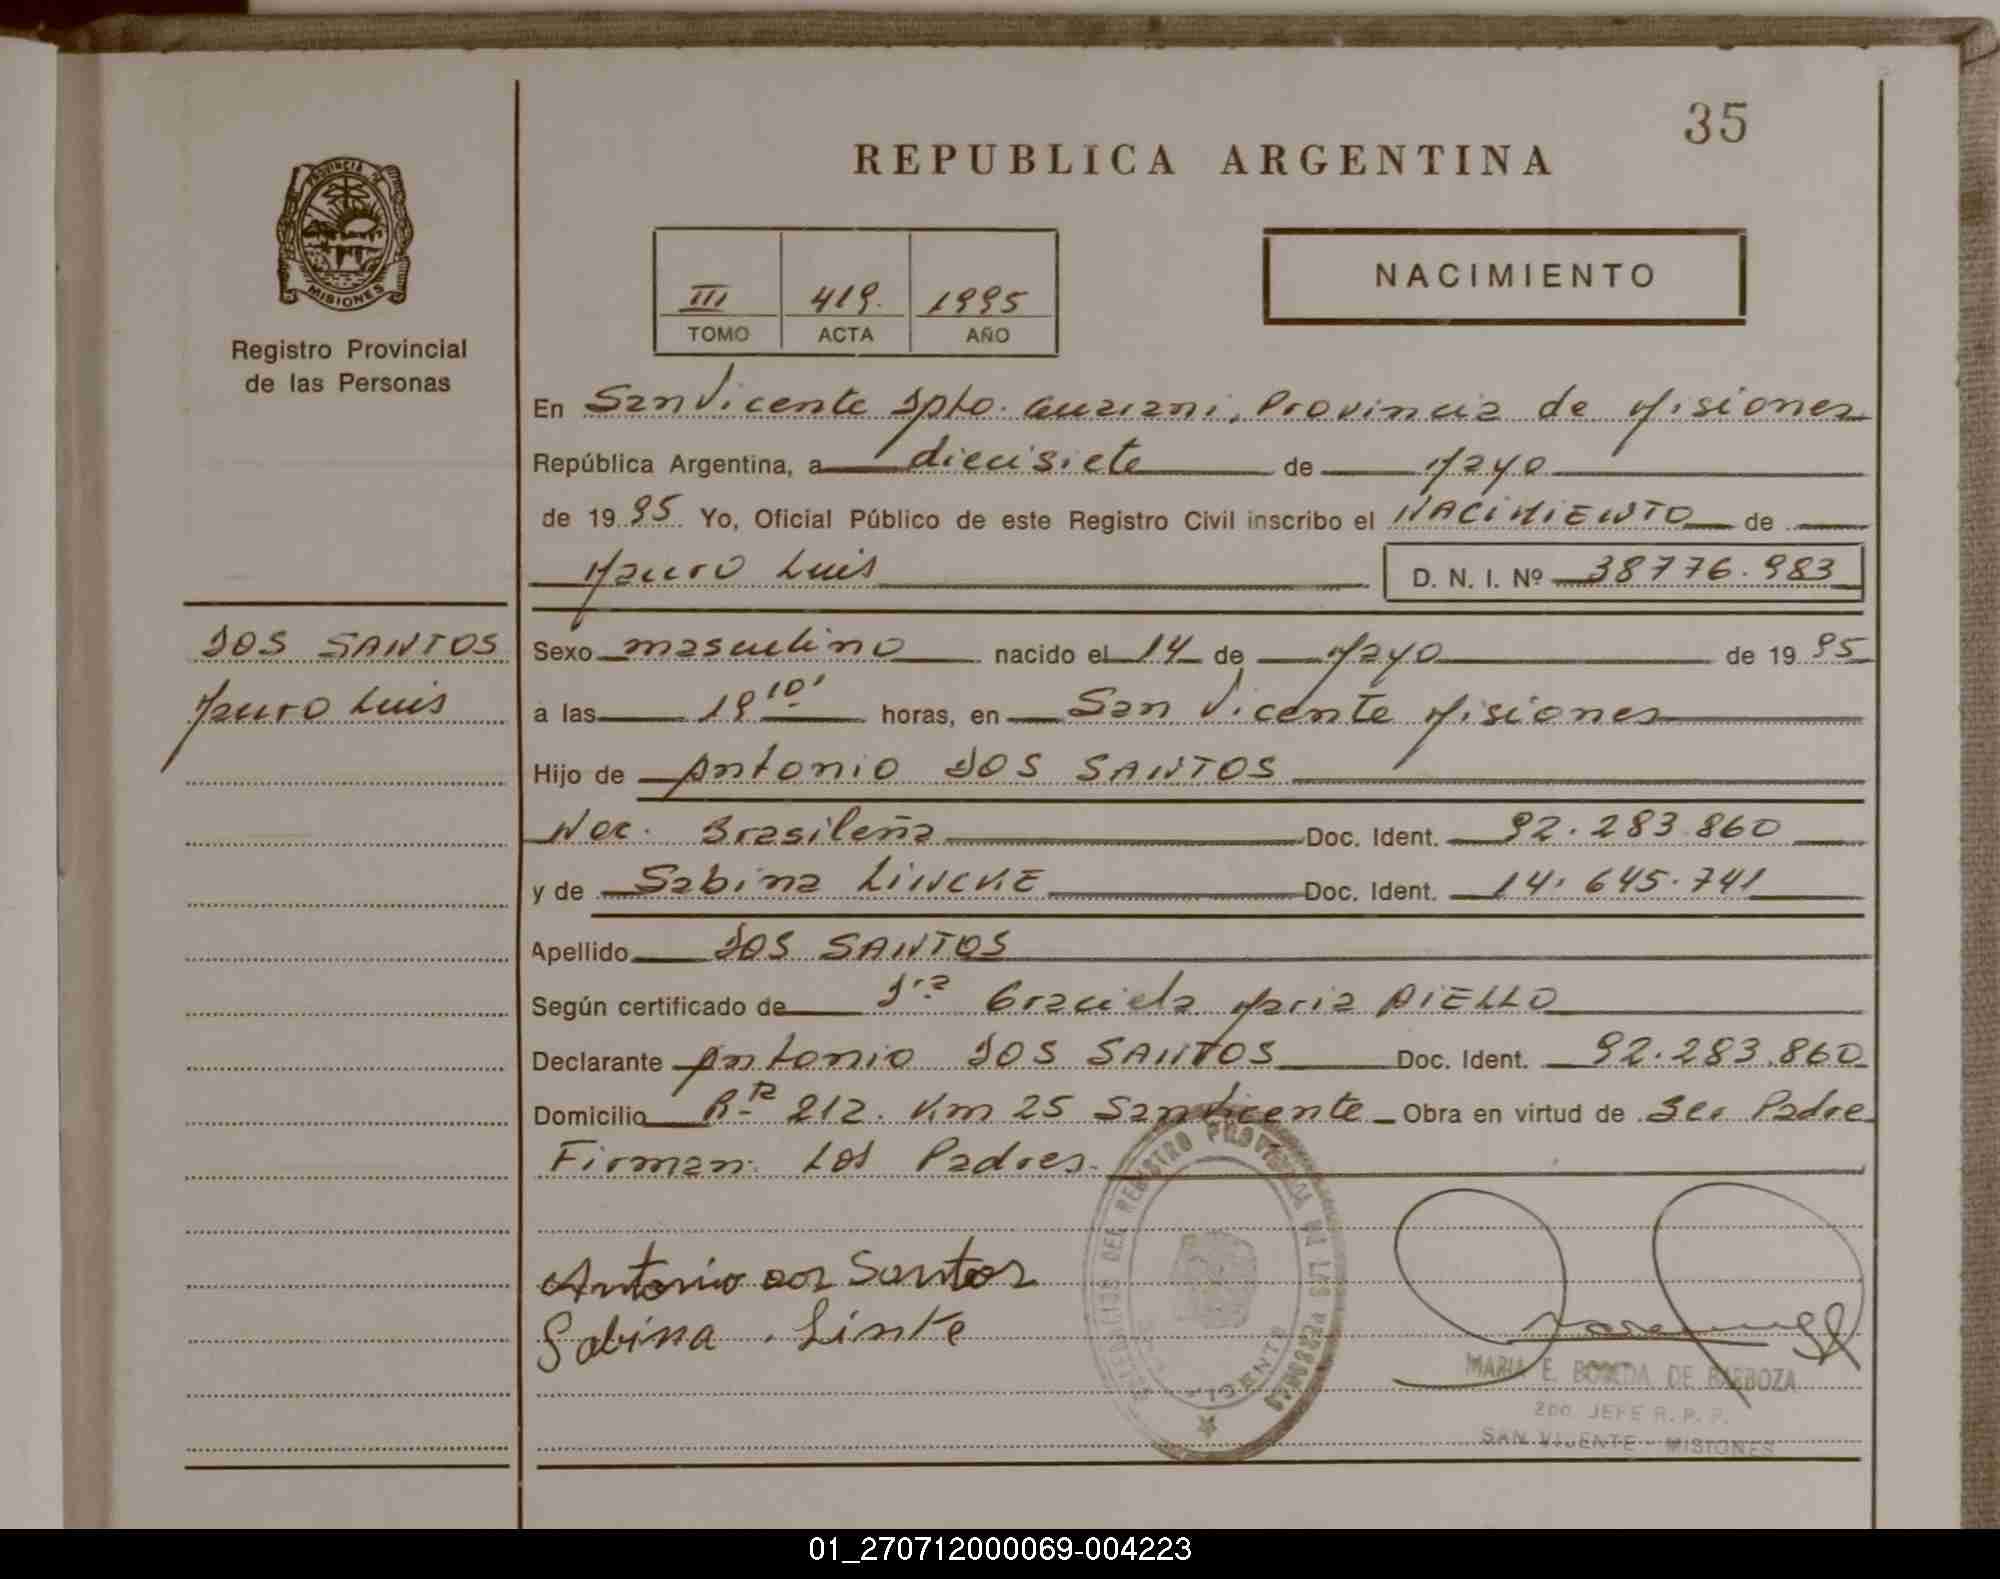 35
REPUBLICA ARGENTINA
PROVINCIA DE
MISIONES
Registro Provincial
de las Personas
III 419. 1995
TOMO ACTA AÑO
NACIMIENTO
En San Vicente Dpto. Guarani, Provincia de Misiones
República Argentina, a diecisiete de Mayo
de 1995 Yo, Oficial Público de este Registro Civil inscribo el NACIMIENTO de
Mauro Luis D. N. I. Nº 38776.983
DOS SANTOS
Mauro Luis
Sexo masculino nacido el 14 de Mayo de 1995
a las 19 10' horas, en San Vicente Misiones
Hijo de Antonio DOS SANTOS
Nac. Brasileña Doc. Ident. 92.283.860
y de Sabina LINCKE Doc. Ident. 14.645.741
Apellido DOS SANTOS
Según certificado de Dra Graciela Maria AIELLO
Declarante Antonio DOS SANTOS Doc. Ident. 92.283.860
Domicilio 212. Km 25 San Vicente Obra en virtud de Ser Padre
Firman: Los Padres.
Antonio dos Santos
Sabina Linke
DEL REGISTRO PROVINCIAL DE LAS PERSONAS
VICENTE
MARIA E. DE BARBOZA
2do. JEFE R. P. P.
SAN VICENTE - MISIONES
01_270712000069-004223